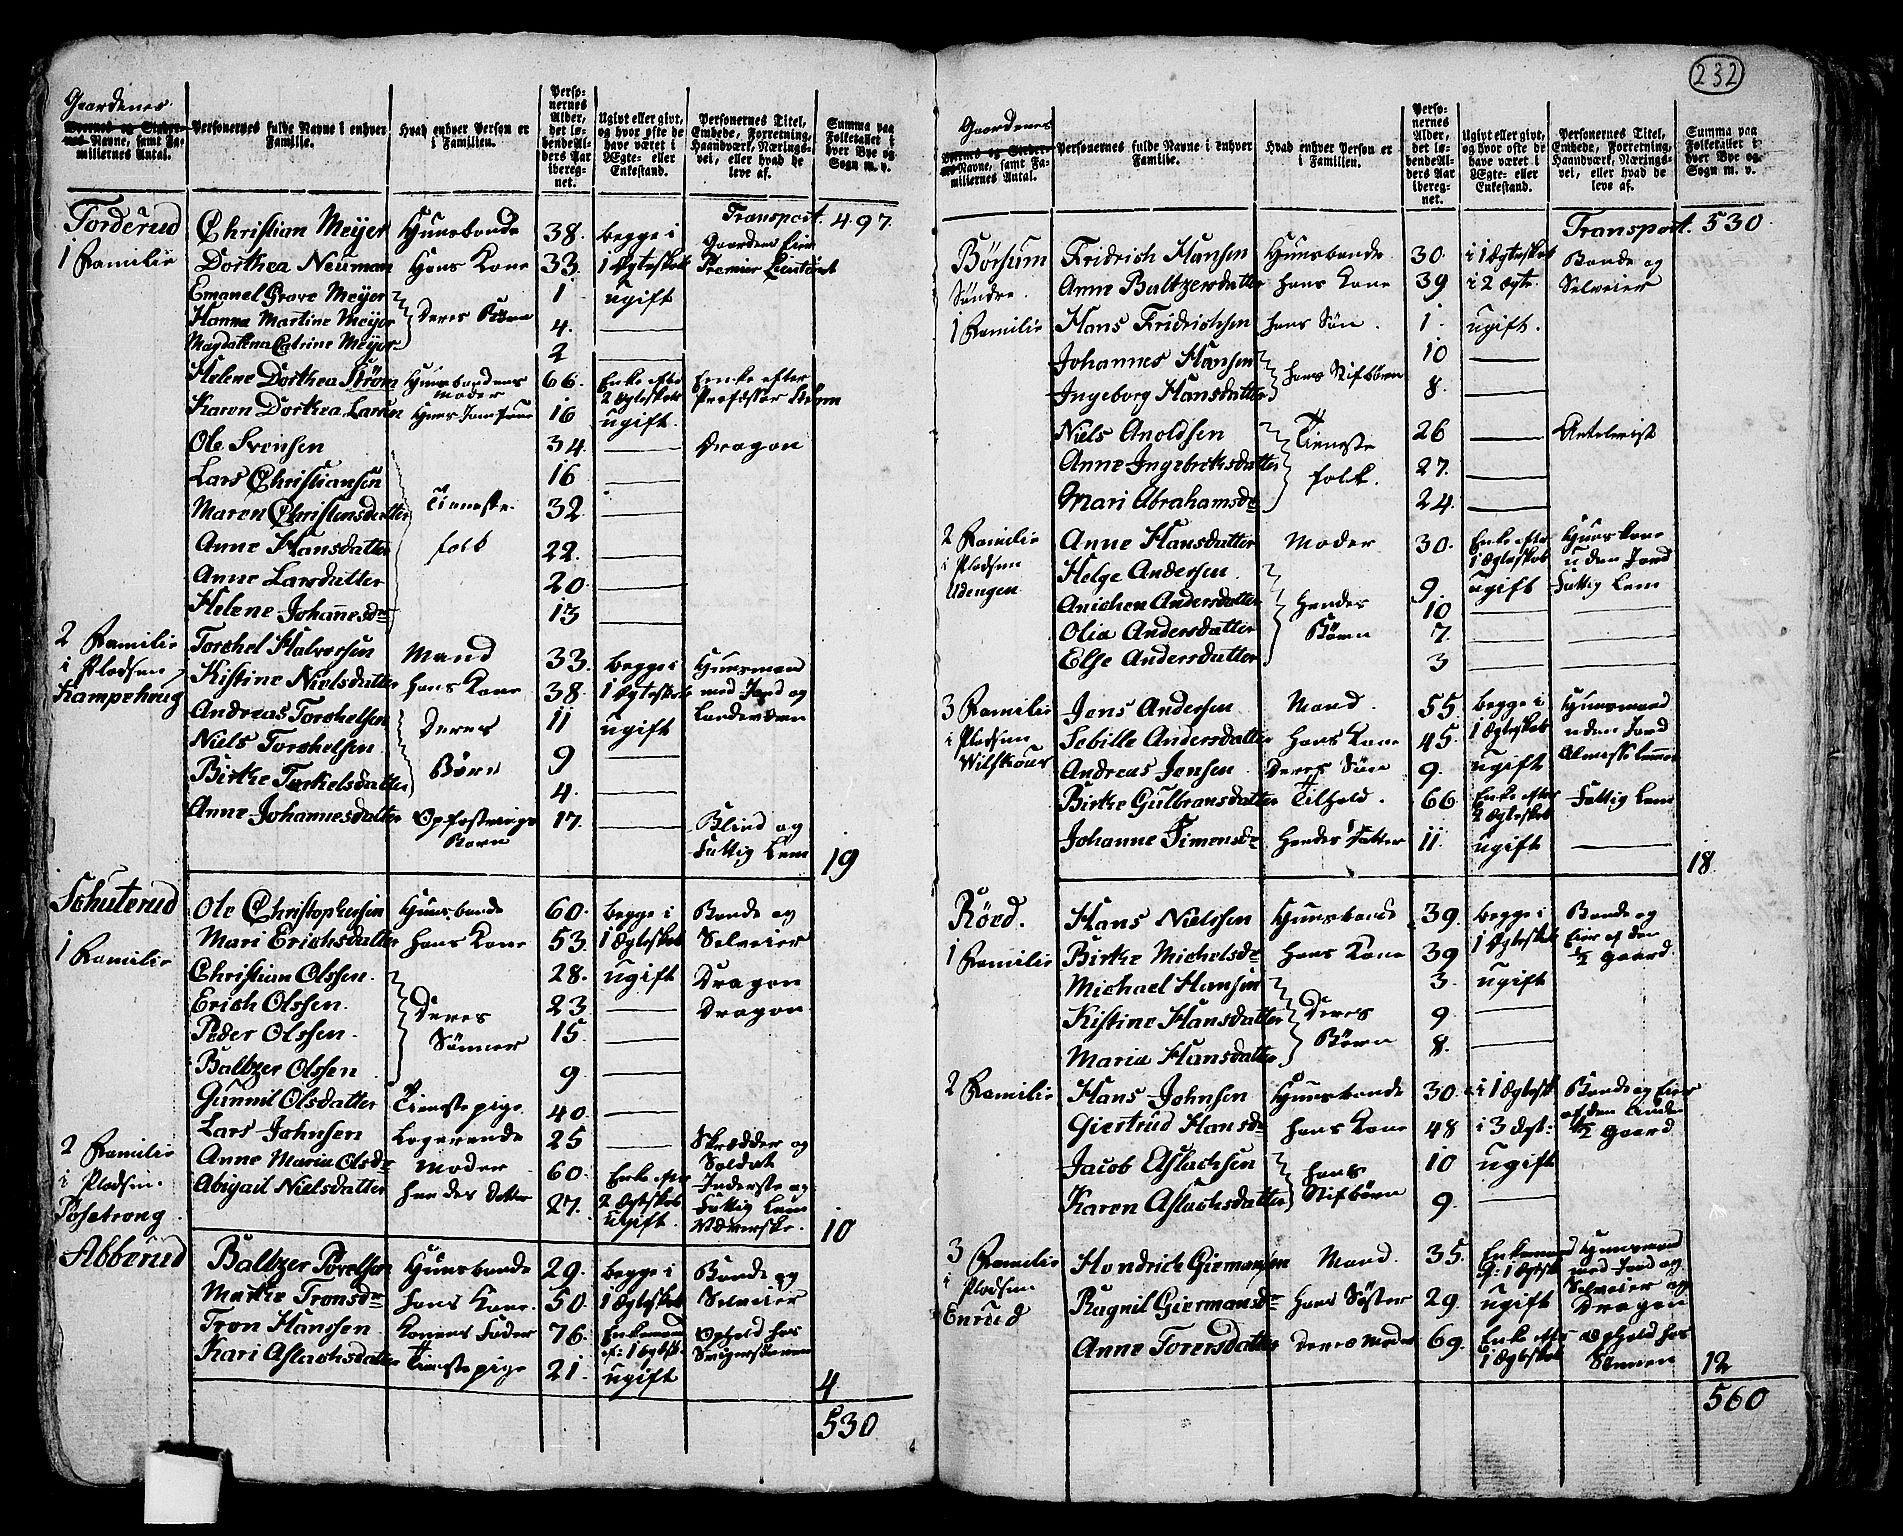 232
Gaardenes
Byernes og Stedernes Navne, samt Familiernes Antal.
Personernes fulde Navne i enhver Familie.
Hvad enhver Person er i Familien.
Personernes Alder, det løbende Alders Aar iberegnet.
Ugivt eller givt, og hvor ofte de have været i Ægte- eller Enkestand.
Personernes Titel, Embede, Forretning, Haandværk, Næringsvei, eller hvad de leve af.
Summa paa Folketallet i hver Bye og Sogn m. v.
Transport. 497.
Torderud Christian Meyer Huusbonde 38. begge i Gaardens Eier
1 Familie Dorthea Neuman Hans Kone 33. 1 Ægteskab Premier Lieutenant
Emanel Grove Meyer 1 ugift
Hanna Martine Meyer Deres Børn 4. —
Magdalena Catrine Meyer 2 —
Helene Dorthea Strøm Huusbondens Moder 66. Enke efter 2 Ægteskab Enke efter Professor Strøm
Karen Dorthea Larsen Huus Jomfrue 16 ugift.
Ole Svensen 34. — Dragon
Lars Christiansen 16 —
Maren Christensdatter Tieneste 32 —
Anne Hansdatter folk 22. —
Anne Larsdatter 20. —
Helene Johannesdr 13 —
2 Familie Torchel Halvorsen Mand 33. begge i Huusmand
i Pladsen Kistine Nielsdatter hans Kone 38. 1 Ægteskab med Jord og
Kampehoug Andreas Torchelsen Deres 11 ugift Landværn
Niels Torchelsen Børn 9 —
Birthe Torchelsdatter 4. —
Anne Johannesdatter Opfostrings Barn 17. — Blind og Fattig Lem 19
Schuterud Ole Christophersen Huusbonde 60. begge i Bonde og
1 Familie Mari Erichsdatter hans Kone 53. 1 Ægteskab Selveier
Christian Olssen. 28. ugift Dragon
Erich Olssen. Deres 23 — Dragon
Peder Olssen. Sønner 15 —
Baltzer Olssen 9 —
Gunnil Olsdatter Tienestepige 40. —
Lars Johnsen Logerende 25 — Skrædder og Soldat
2 Familie Anne Maria Olsdr Moder 60. Enke efter 2 Ægteskab Inderste og Fattig Lem
i Pladsen. Abigail Nielsdatter hendes Datter 27. ugift. Væverske. 10
Posetrong
Abborud Baltzer Povelsen Huusbonde 29. begge i Bonde og
Marthe Tronsdr hans Kone. 50. 1 Ægteskab Selveier
Tron Hanssen Konens Fader 76. Enkemand ef: 1 Ægtesk Ophold hos
Kari Aslachsdatter Tienestepige 21. ugift 4
530
Gaardenes
Byernes og Stedernes Navne, samt Familiernes Antal.
Personernes fulde Navne i enhver Familie.
Hvad enhver Person er i Familien.
Personernes Alder, det løbende Alders Aar iberegnet.
Ugivt eller givt, og hvor ofte de have været i Ægte- eller Enkestand.
Personernes Titel, Embede, Forretning, Haandværk, Næringsvei, eller hvad de leve af.
Summa paa Folketallet i hver Bye og Sogn m. v.
Transport. 530.
Børsum Fridrich Hansen Huusbonde 30. i 1 Ægteskab Bonde og
Søndre. Anne Baltzersdatter hans Kone 39 i 2 Ægte. Selveier
1 Familie Hans Fridrichsen hans Søn. 1. ugift.
Johannes Hansen hans Stifbørn 10 —
Ingeborg Hansdatter 8. —
Niels Anoldsen Tieneste 26 —
Anne Ingebrichsdatter folk. 27. —
Mari Abrahamsdr 24. —
2 Familie Anne Hansdatter Moder 30. Enke efter 1 Ægteskab Huuskone uden Jord
i Pladsen Helge Andersen 9. ugift Fattig Lem
Udengen Anichen Andersdatter Hendes 10 — —
Olia Andersdatter Børn 7. — —
Else Andersdatter 3 — —
3 Familie Jens Andersen Mand. 55. begge i Huusmand
i Pladsen Sebille Andersdatter hans Kone 45. 1 Ægteskab uden Jord
Wilskour Andreas Jensen Deres Søn 9. ugift
Birthe Gulbransdatter Tilhold. 66 Enke efter 2 Ægteskab Fattig Lem
Johanne Simensdr Hendes Datter 11. ugift — 18
Röed. Hans Nielssen Huusbonde 39. begge i Bonde og
1 Familie Birthe Michelsdr hans Kone 39 1 Ægteskab Eier af den 1/2 gaard.
Michael Hansen 3. ugift
Kistine Hansdatter Deres 9 —
Maria Hansdatter Børn 8. —
2 Familie Hans Johnsen Huusbonde 30. i 1 Ægtesk Bonde og Eier
Giertrud Hansdr hans Kone 48 i 3 Ægt: af den anden 1/2 gaard
Jacob Aslachsen hans 10 ugift
Karen Aslachsdatter Stifbørn 9. —
3 Familie Hendrich Giermansen Mand. 35. Enkemand ef: 1 Ægtesk Huusmand med Jord og
i Pladsen Ragnil Giermansdr hans Søster 29. ugift Selveier og Dragon
Enrud Anne Torersdatter Deres Moder 69. Enke efter 1 Ægteskab Ophold hos Sønnen 12
560